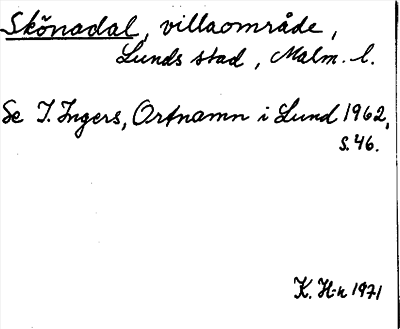 Skönadal, villaområde,
Lunds stad, Malm. l.
Se I. Ingers, Ortnamn i Lund 1962,
s. 46.
K. H:n 1971